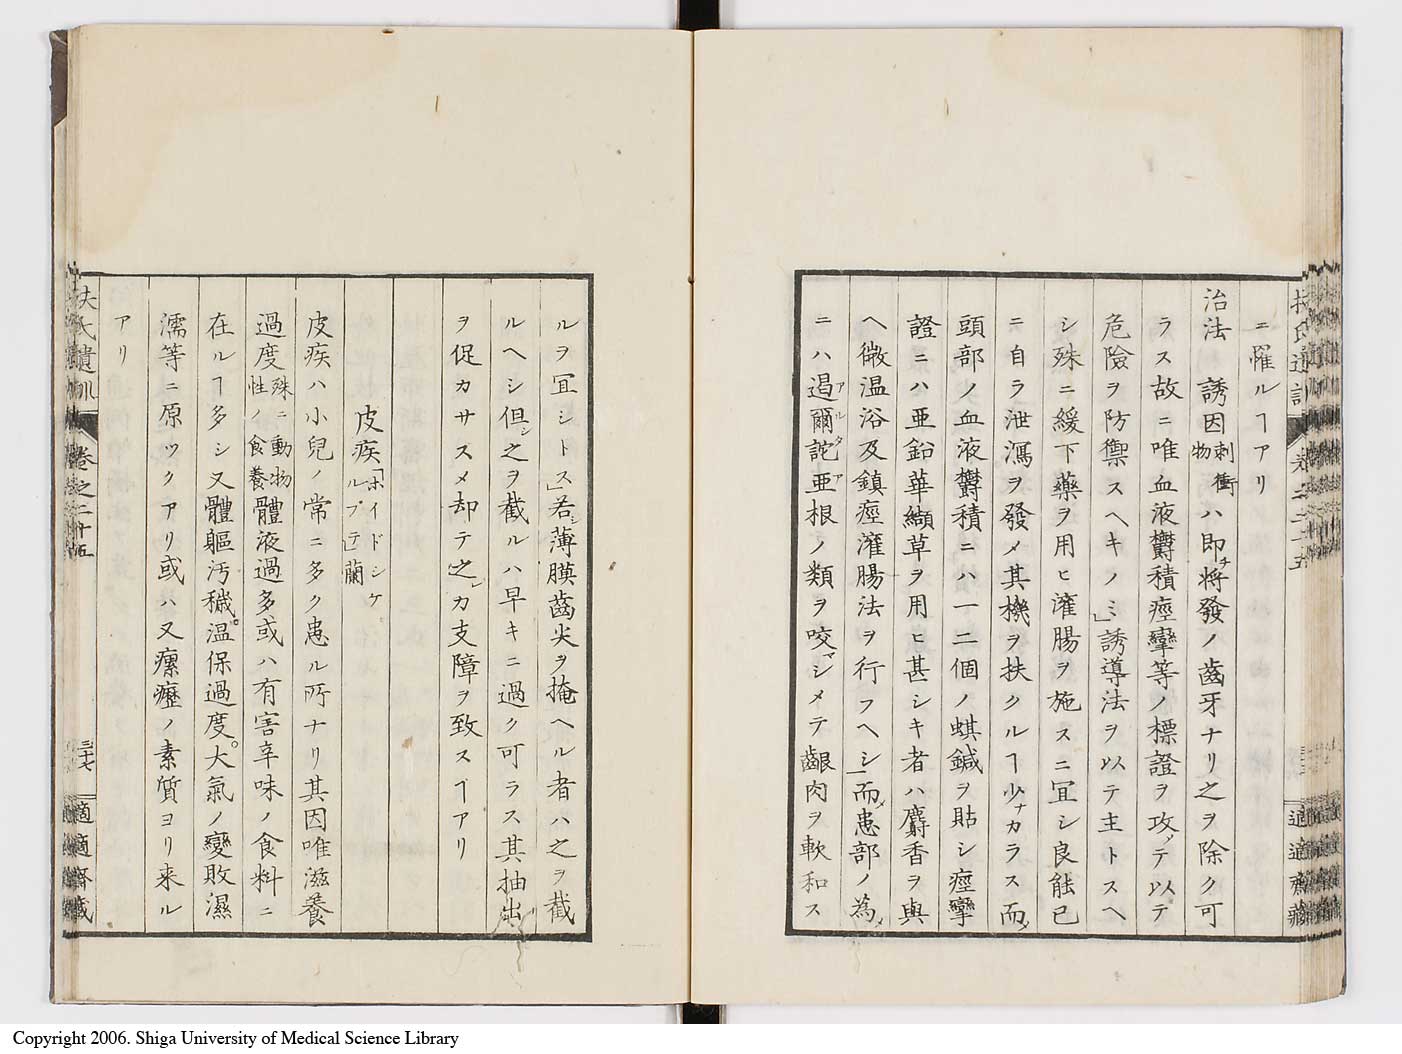 ニ罹ルヿアリ
治法 誘因刺衝物ハ即チ将發ノ齒牙ナリ之ヲ除ク可
ラス故ニ唯血液欝積痙攣等ノ標證ヲ攻メテ以テ
危險ヲ防禦スヘキノミ」誘導法ヲ以テ主トスヘ
シ殊ニ緩下藥ヲ用ヒ潅腸ヲ施スニ宜シ良能已
ニ自ラ泄瀉ヲ發メ其機ヲ扶クルヿ少ナカラス而
頭部ノ血液欝積ニハ一二個ノ蜞鍼ヲ貼シ痙攣
證ニハ亜鉛華纈草ヲ用ヒ甚シキ者ハ麝香ヲ與
ヘ微温浴及鎮痙潅腸法ヲ行フヘシ」而患部ノ為
ニハ遏爾託亜根ノ類ヲ咬シメテ齦肉ヲ軟和ス
アルタア
ルヲ冝シトス」若シ薄膜齒尖ヲ掩ヘル者ハ之ヲ截
ルヘシ但シ之ヲ截ルハ早キニ過ク可ラス其抽出
ヲ促カサスメ却テ之レカ支障ヲ致スヿアリ
皮疾「ホイドシケルプテ」蘭
皮疾ハ小兒ノ常ニ多ク患ル所ナリ其因唯滋養
過度殊ニ動物性ノ食養體液過多或ハ有害辛味ノ食料ニ
在ルヿ多シ又體軀汚穢。温保過度。大氣ノ變敗濕
濡等ニ原ツクアリ或ハ又瘰癧ノ素質ヨリ来ル
アリ
扶氏遺訓 巻之二十五 三十七 適適齋藏